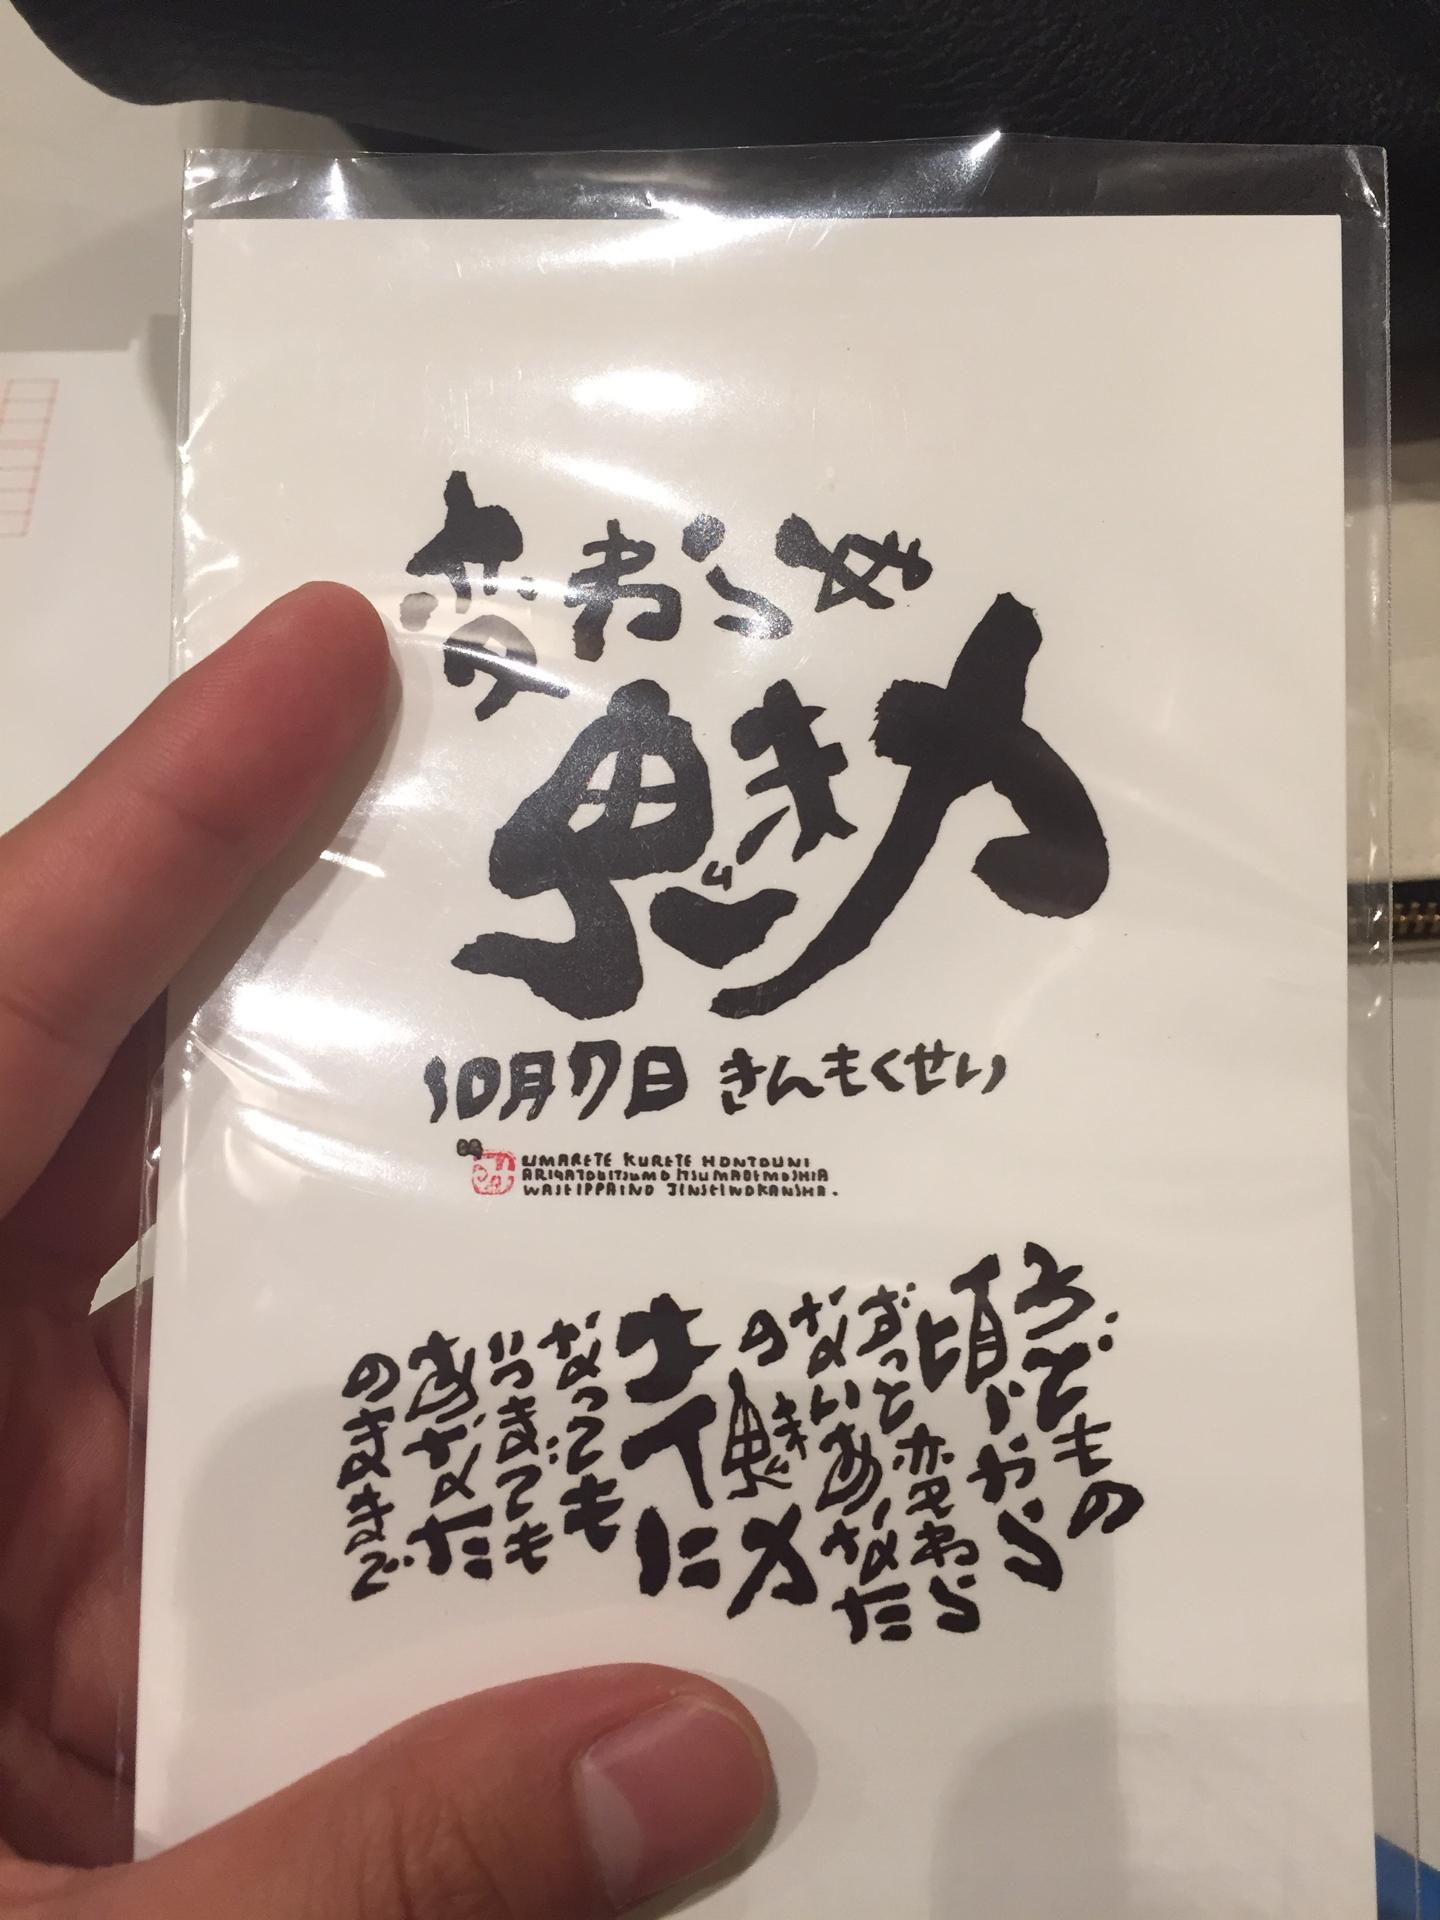 変わらぬ
魅力
10月7日 きんもくせい
UMARETE KURETE HONTOUNI
ARIGATOUITSUMO ITSUMADEMOSHIA
WASEIPPAINO JINSEIWOKANSHA.
子どもの
頃から
ずっと変わら
ないあなた
の魅力
大人に
なっても
いつまでも
あなた
のままで